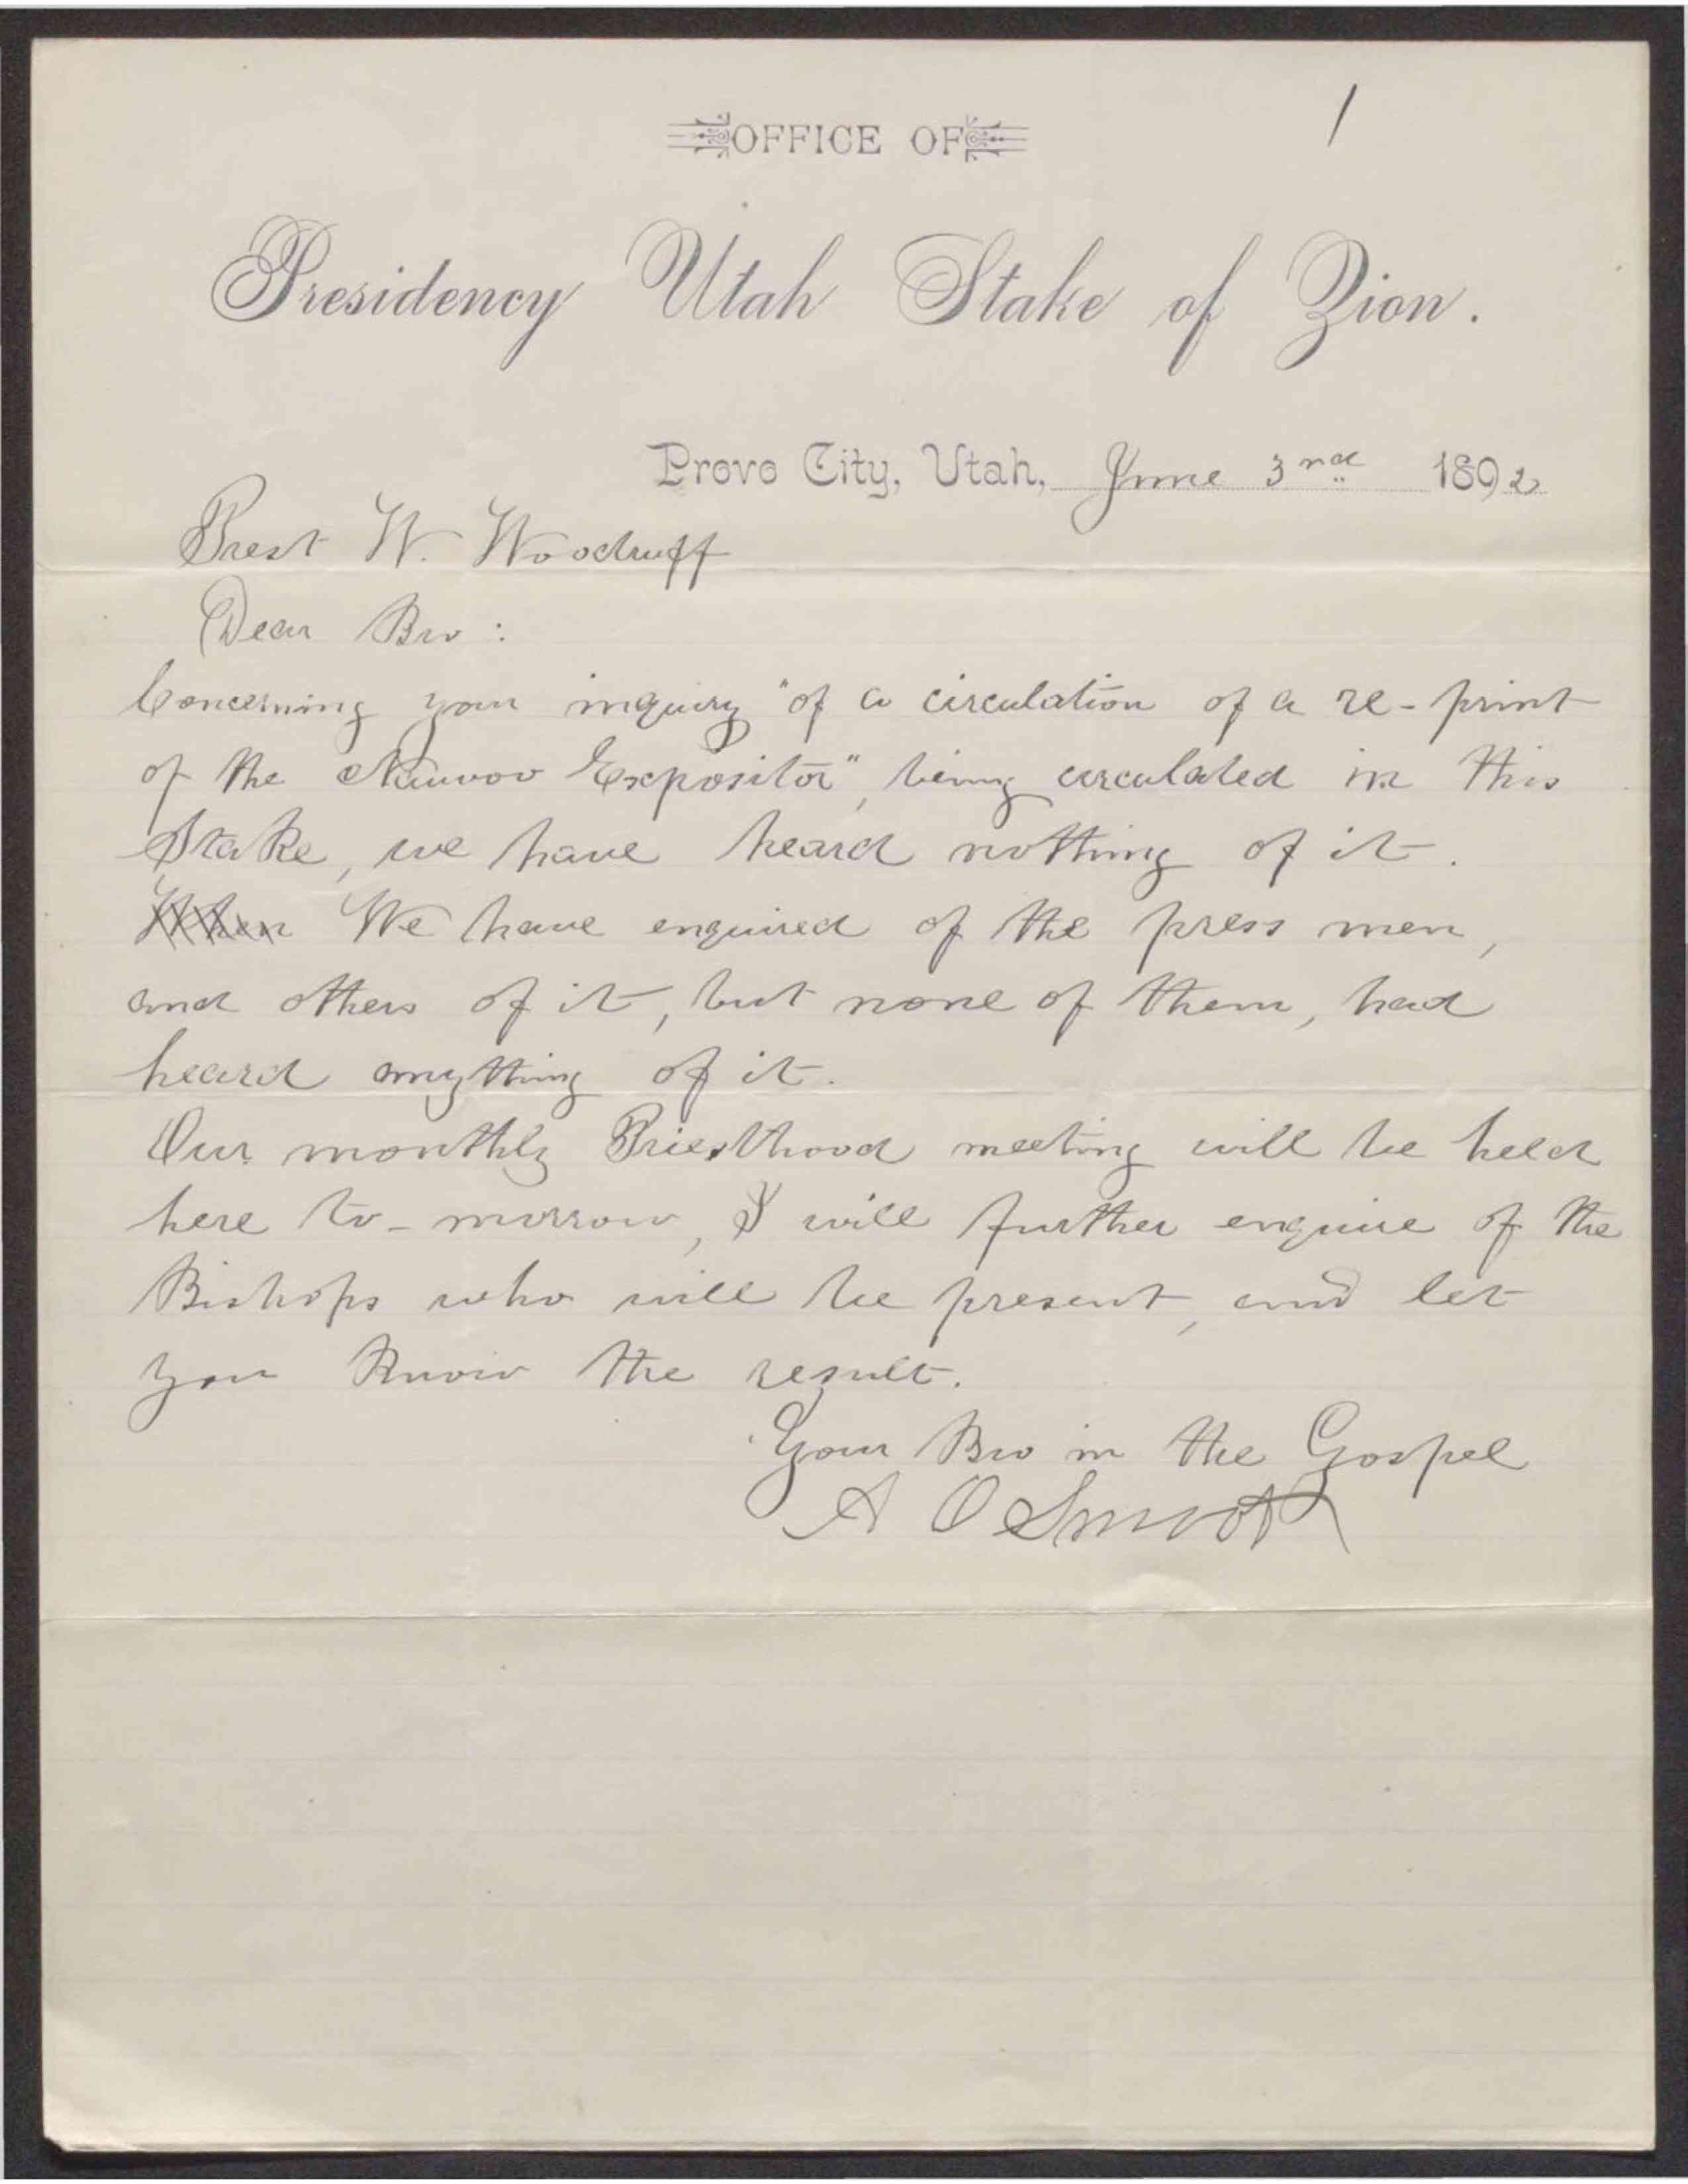 1
OFFICE OF
Presidency Utah Stake of Zion.
Provo City, Utah, June 3nd 1892
Prest W. Woodruff
Dear Bro:
Concerning your inquiry "of a circulation of a re-print
of the Nauvoo Expositor", being circulated in this
Stake, we have heard nothing of it.
When We have enquired of the press men,
and others of it, but none of them, had
heard anything of it.
Our monthly Priesthood meeting will be held
here to-morrow, I will further enquire of the
Bishops who will be present, and let
you know the result.
Your Bro in the Gospel
A O Smoot